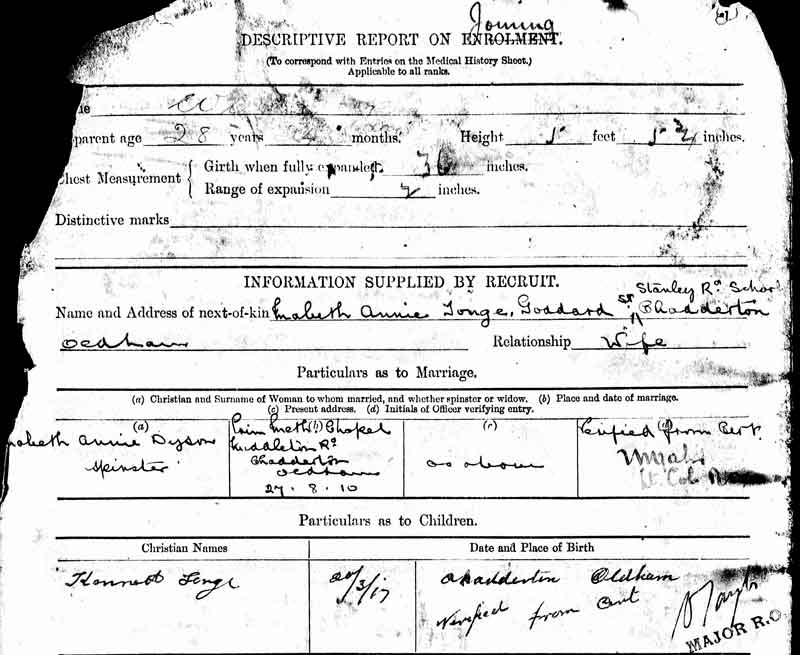 Joining
DESCRIPTIVE REPORT ON ENROLMENT.
(To correspond with Entries on the Medical History Sheet.)
Applicable to all ranks.
parent age 28 years months. Height 5 feet 5 3/4 inches.
Chest Measurement { Girth when fully expanded 36 inches.
Range of expansion 2 inches.
Distinctive marks
INFORMATION SUPPLIED BY RECRUIT.
Stanley Rd. School
Name and Address of next-of-kin Mabeth Annie Tonge, Goddard St Chadderton
Oldham Relationship Wife
Particulars as to Marriage.
(a) Christian and Surname of Woman to whom married, and whether spinster or widow. (b) Place and date of marriage.
(c) Present address. (d) Initials of Officer verifying entry.
(a) (b) (c) (d)
Mabeth Annie Dyson Prim Meth Chapel Verified from Cert.
Spinster Middleton Rd as above
Chadderton Lt Col
Oldham
27.8.10
Particulars as to Children.
Christian Names Date and Place of Birth
Kenneth Tonge 20/3/17 Chadderton Oldham
Verified from Cert
MAJOR R.O